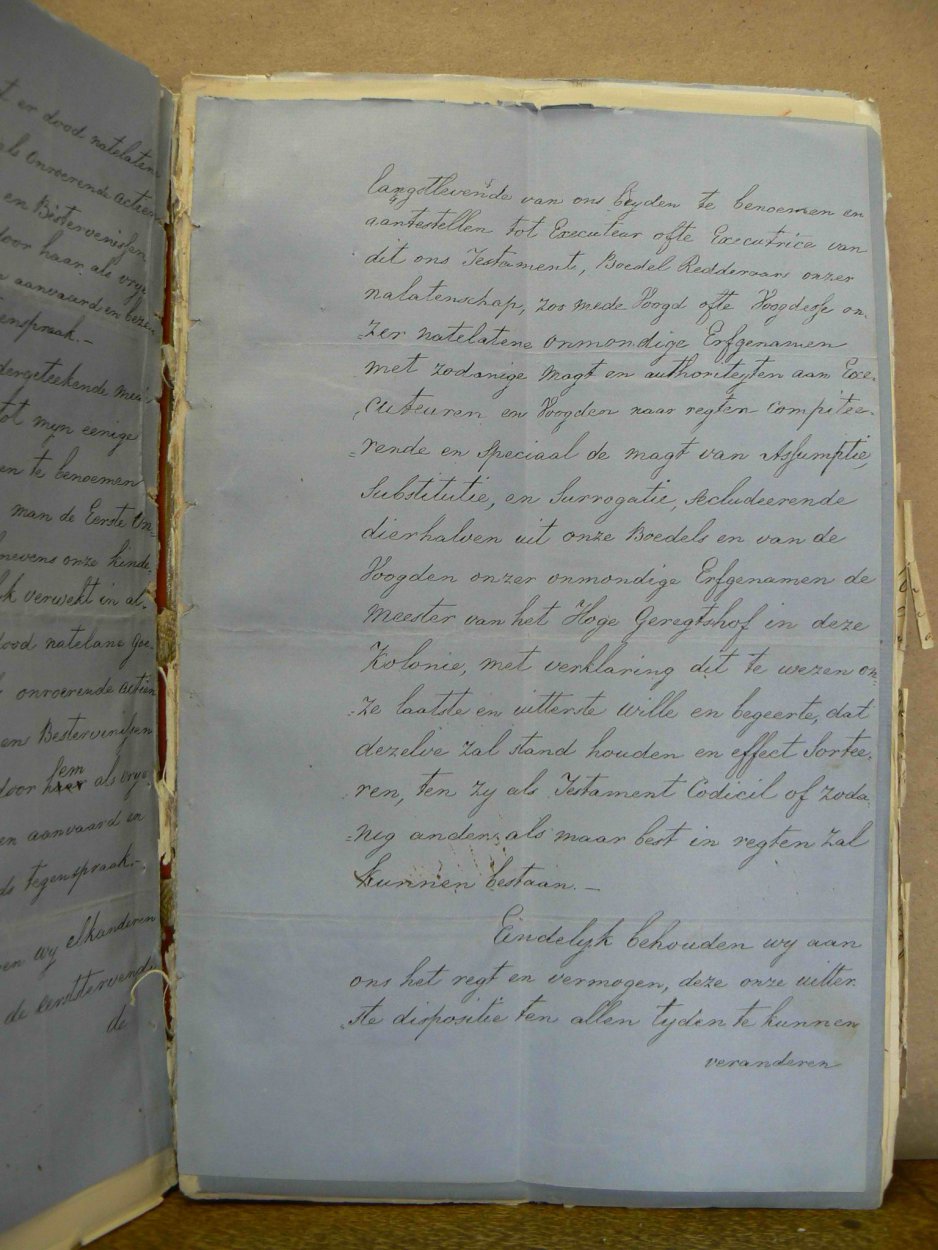 t er dood natelaten
als Onroerende Actien
en Bistervenissen
door haar als vrye
n aanvaard en beze-
enspraak.-
dergeteekende mei
tot myn eenige
en te benoemen
man de Eerste On-
nevens onze kinde-
k verwekt in al-
dood natelane Goe-
onroerende Actien
en Bestervenissen
door hem als vrye
en aanvaard en
ds tegenspraak.-
en wy elkanderen
de eerststervende
de
langstlevende van ons beyden te benoemen en
aantestellen tot Executeur ofte Executrice van
dit ons Testament, Boedel Redderaar onzer
nalatenschap, zoo mede Voogd ofte Voogdesse on-
=zer natelatene onmondige Erfgenamen
met zodanige magt en authoriteyten aan Exe-
cuteuren en Voogden naar regten Compitee-
=rende en speciaal de magt van Assumptie,
Substitutie, en Surrogatie, Secludeerende
dierhalven uit onze Boedels en van de
Voogden onzer onmondige Erfgenamen de
Meester van het Hoge Geregtshof in deze
Kolonie, met verklaring dit te wezen on-
=ze laatste en uitterste wille en begeerte, dat
dezelve zal stand houden en effect Sortee-
ren, ten zy als Testament Codicil of zoda-
=nig anders als maar best in regten zal
kunnen bestaan. -
Eindelyk behouden wy aan
ons het regt en vermogen, deze onze uitter-
ste dispositie ten allen tyden te kunnen
veranderen